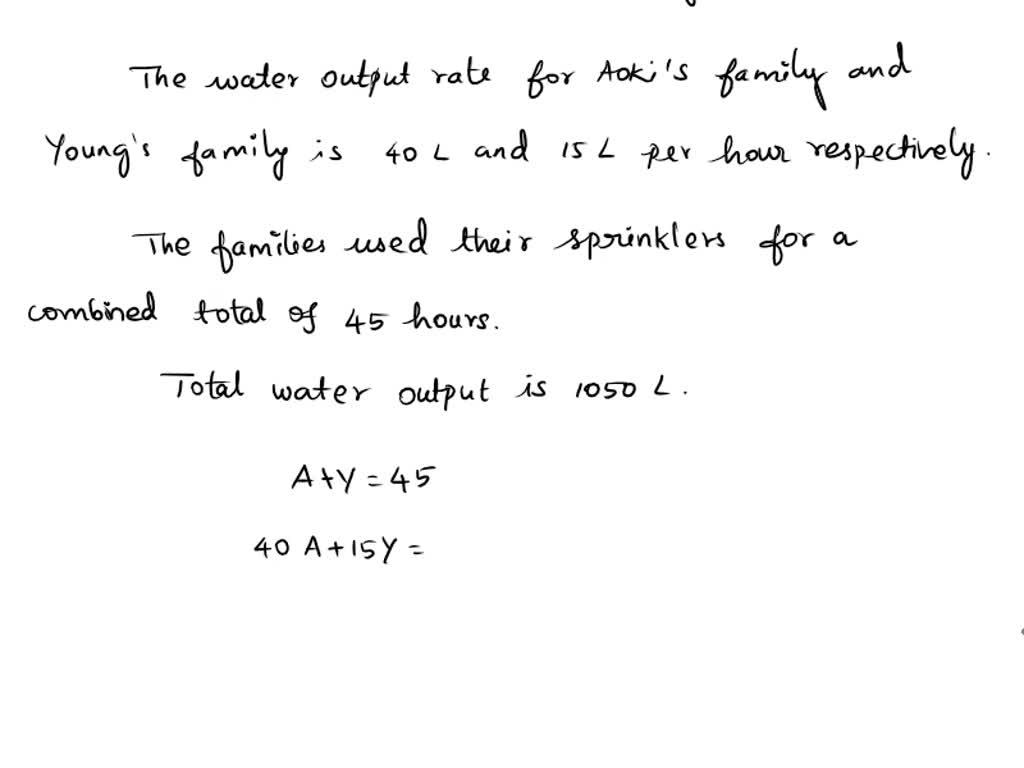 The water output rate for Aoki's family and
Young's family is 40 L and 15 L per hour respectively.
The families used their sprinklers for a
combined total of 45 hours.
Total water output is 1050 L.
A+Y = 45
40 A + 15Y =